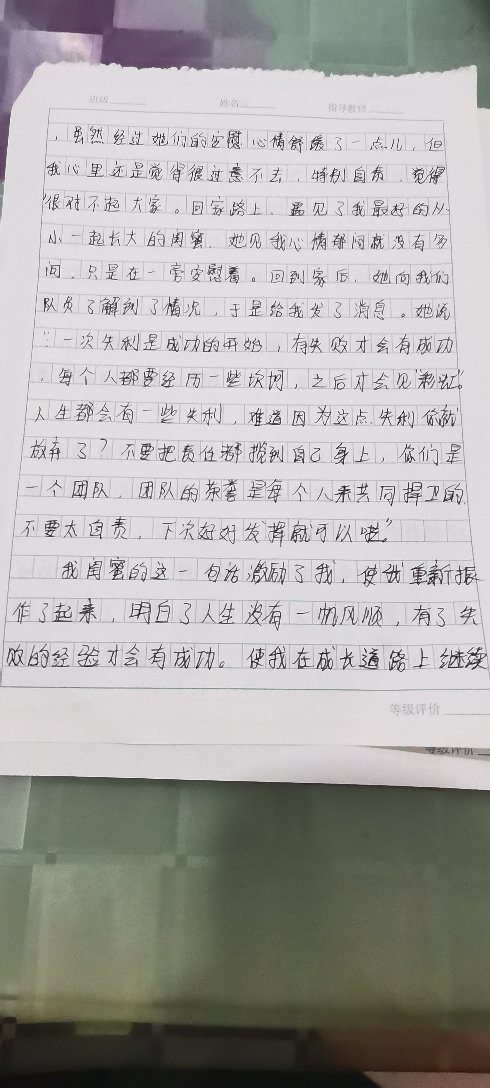 班级 姓名 指导教师
，虽然经过她们的安慰心情舒缓了一点儿，但
我心里还是觉得很过意不去，特别自责，觉得
很对不起大家。回家路上，遇见了我最好的从
小一起长大的闺蜜，她见我心情郁闷就没有多
问，只是在一旁安慰着。回到家后，她向我们
队员了解到了情况，于是给我发了消息。她说
：“一次失利是成功的开始，有失败才会有成功
，每个人都要经历一些坎坷，之后才会见“彩虹”。
人生都会有一些失利，难道因为这点失利你就
放弃了？不要把责任都揽到自己身上，你们是
一个团队，团队的荣誉是每个人来共同捍卫的，
不要太自责，下次好好发挥就可以啦。”
我闺蜜的这一句话激励了我，使我重新振
作了起来，明白了人生没有一帆风顺，有了失
败的经验才会有成功。使我在成长道路上继续
等级评价
等级评价